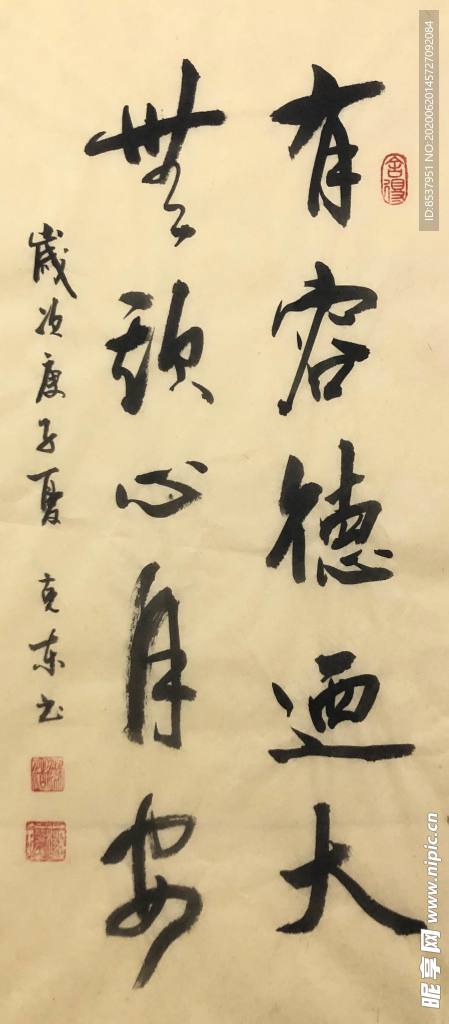 舍得
有容德迺大
無欺心自安
歲次庚子夏 克东书
ID:8537951 NO:20200620145727092084
昵享网 www.nipic.cn